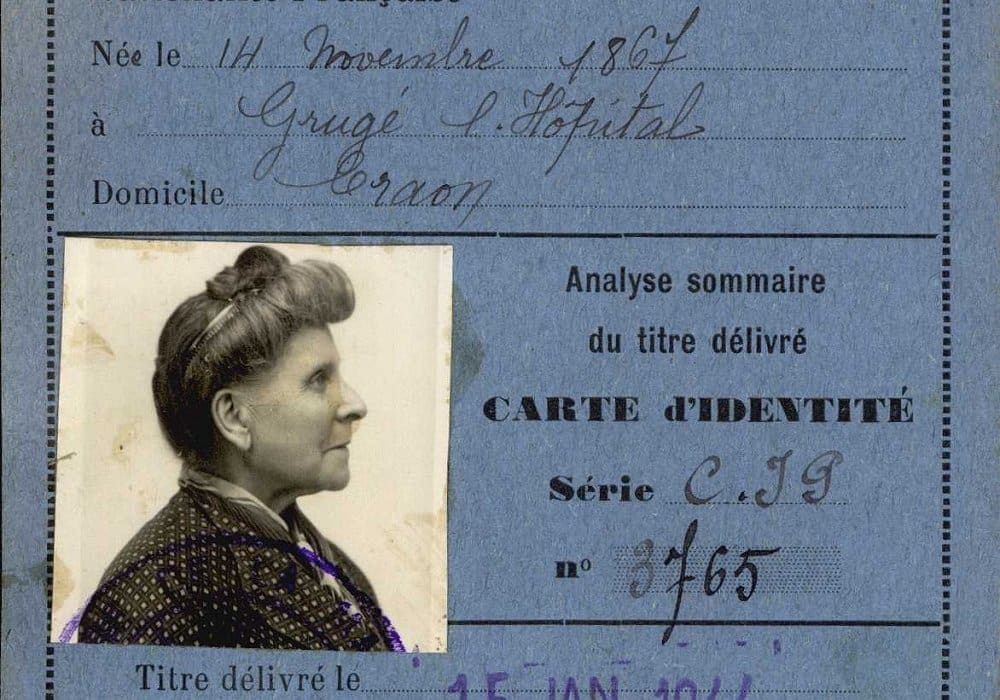 Française
Née le 14 Novembre 1867
à Grugé l.Hôpital
Domicile Craon
Analyse sommaire
du titre délivré
CARTE d'IDENTITÉ
Série C.IP
nº 3765
Titre délivré le 15 JAN 1944